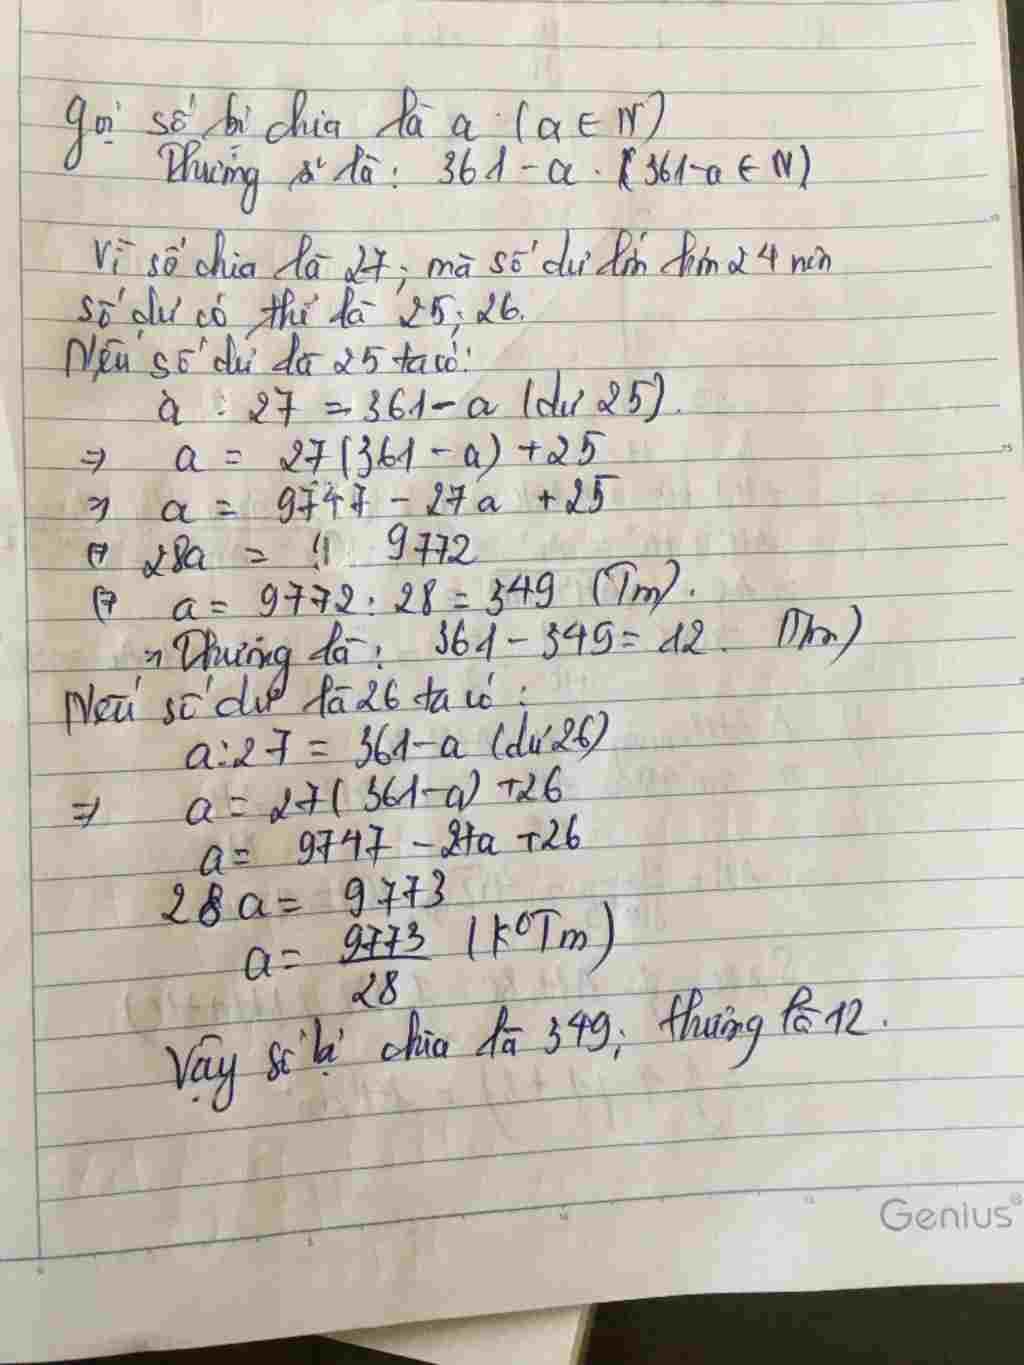 Gọi số bị chia là a. (a ∈ N)
Thương sẽ là: 361 - a. (361-a ∈ N)
Vì số chia là 27, mà số dư lớn hơn 24 nên
số dư có thể là 25; 26.
Nếu số dư là 25 ta có:
a : 27 = 361 - a (dư 25).
=> a = 27(361 - a) + 25
=> a = 9747 - 27a + 25
28a = 9772
a = 9772 : 28 = 349 (Tm).
=> Thương là: 361 - 349 = 12. (Tm)
Nếu số dư là 26 ta có:
a : 27 = 361 - a (dư 26)
=> a = 27(361-a) + 26
a = 9747 - 27a + 26
28a = 9773
a = 9773/28 (K⁰Tm)
Vậy số bị chia là 349; thương là 12.
Genius